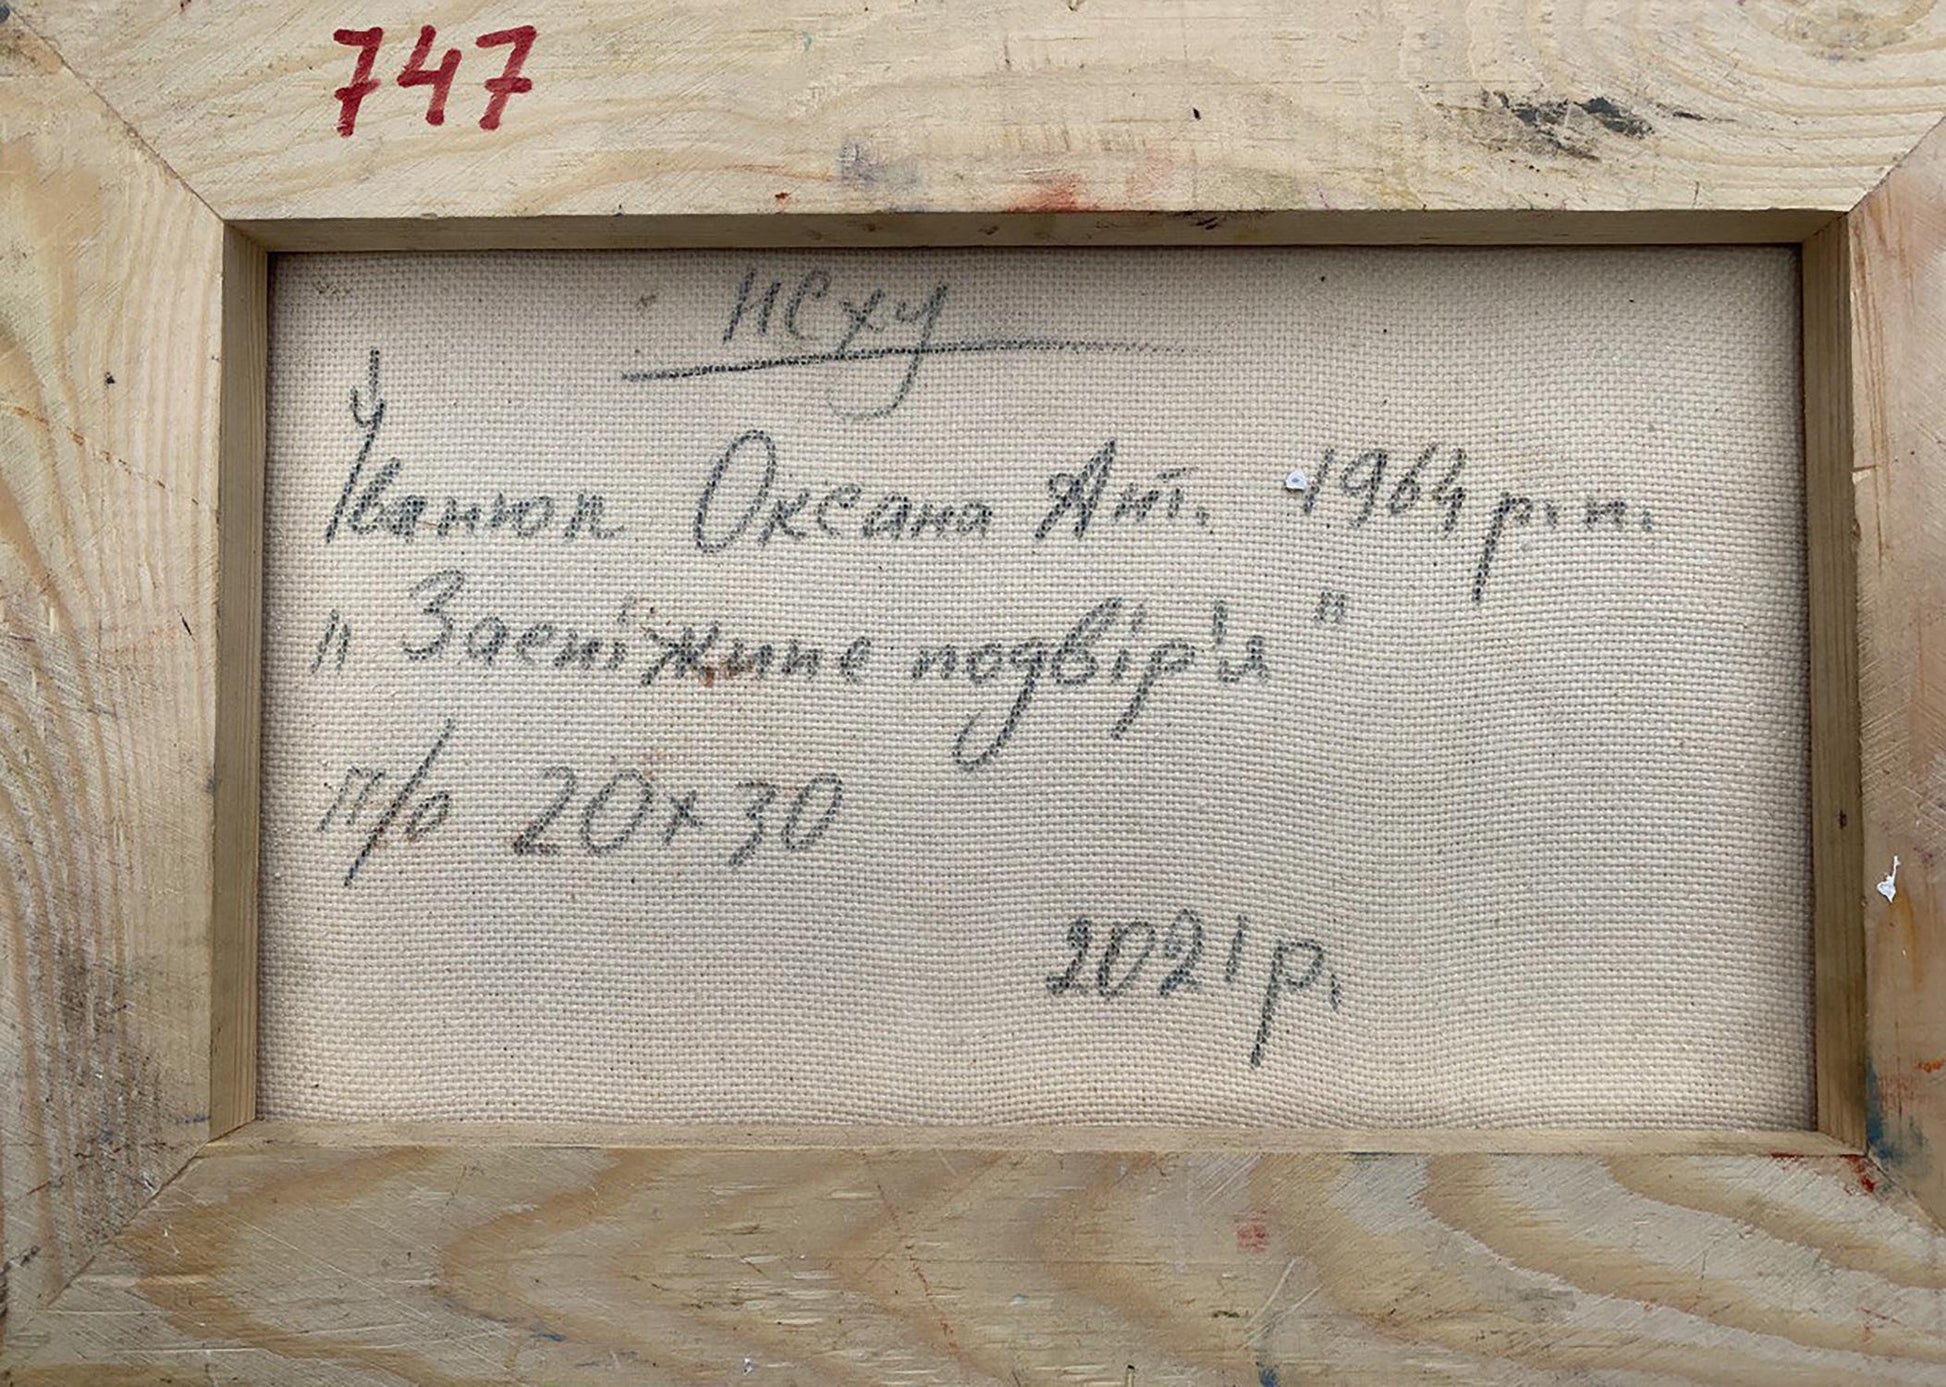 747
НСХУ
Іванюк Оксана Ант. 1964 р.н.
„Засніжине подвір'я"
п/о 20х30
2021р.